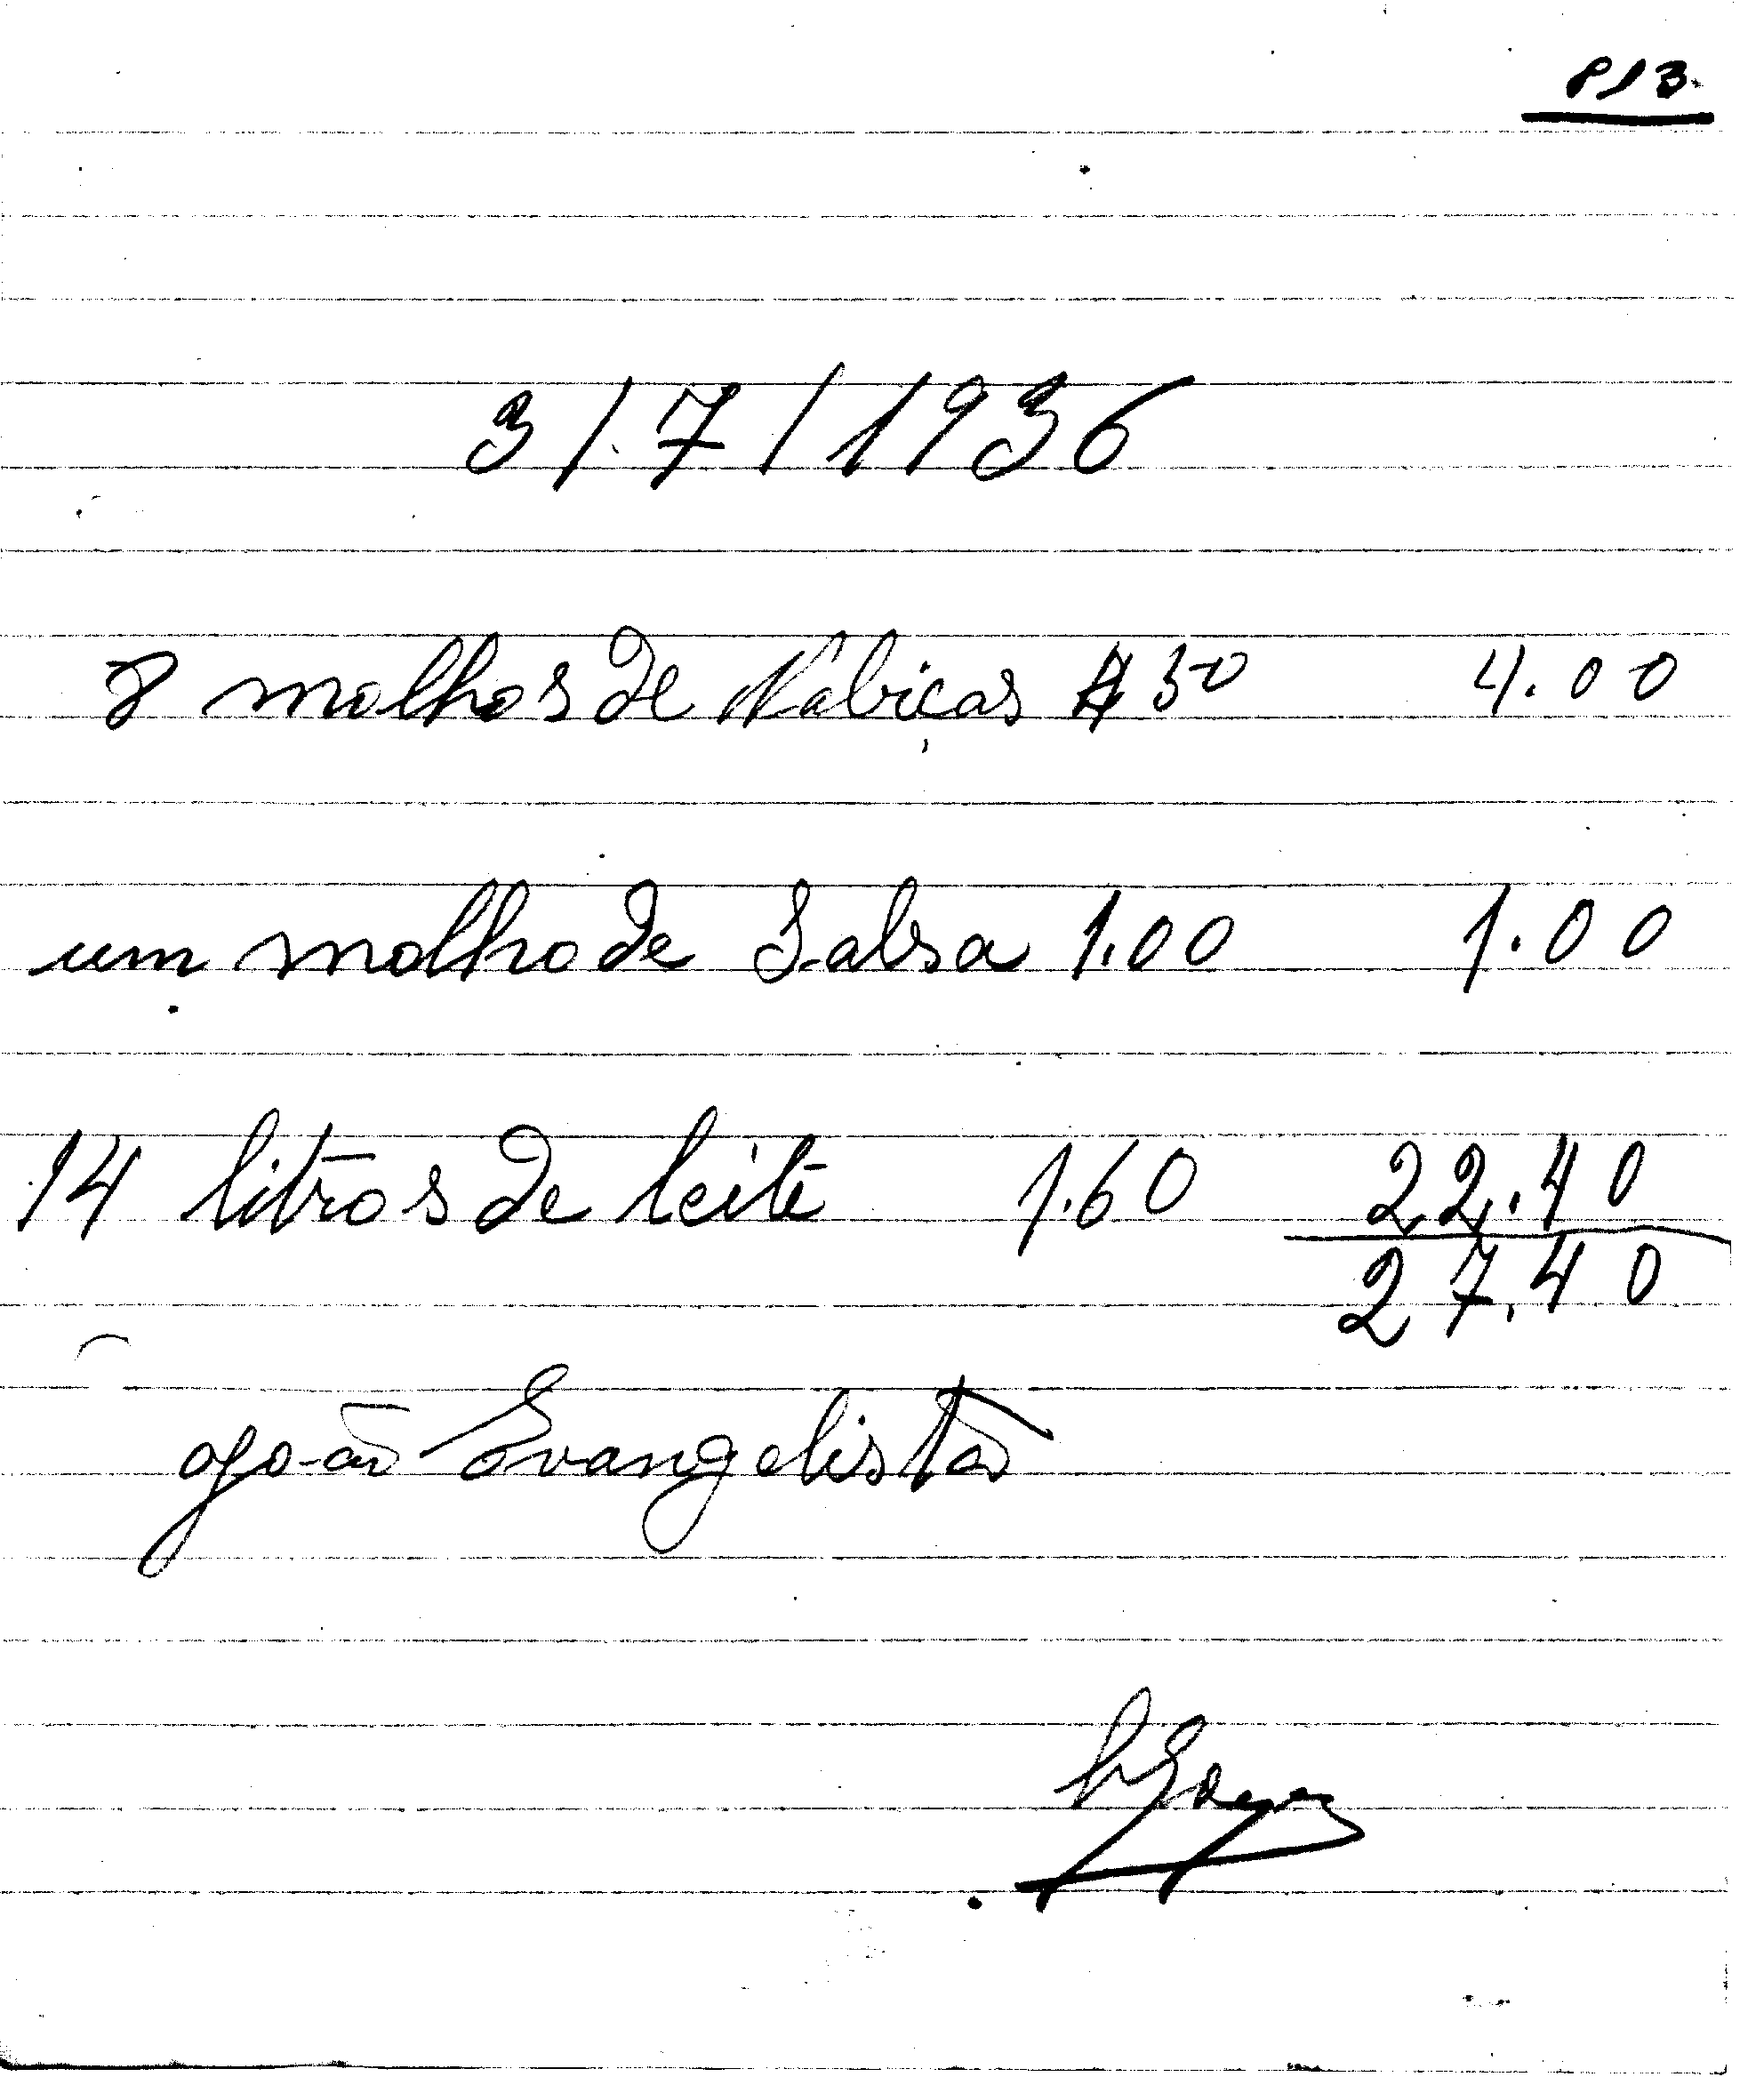 813.
3/7/1936
8 molhos de Nabiças $50 4.00
um molho de Salsa 1.00 1.00
14 litros de leite 1.60 22.40
27.40
João Evangelista